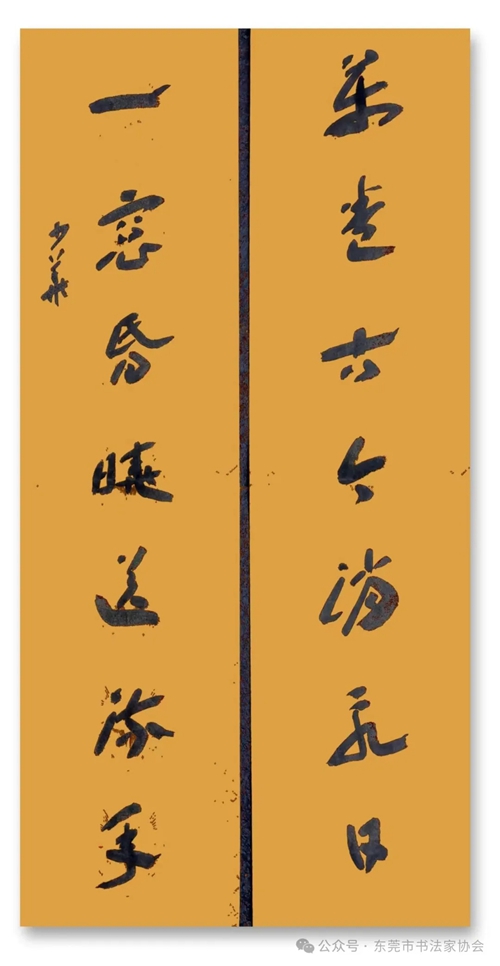 萬卷古今消永日
一窗昏曉送流年
少華
公众号 · 东莞市书法家协会